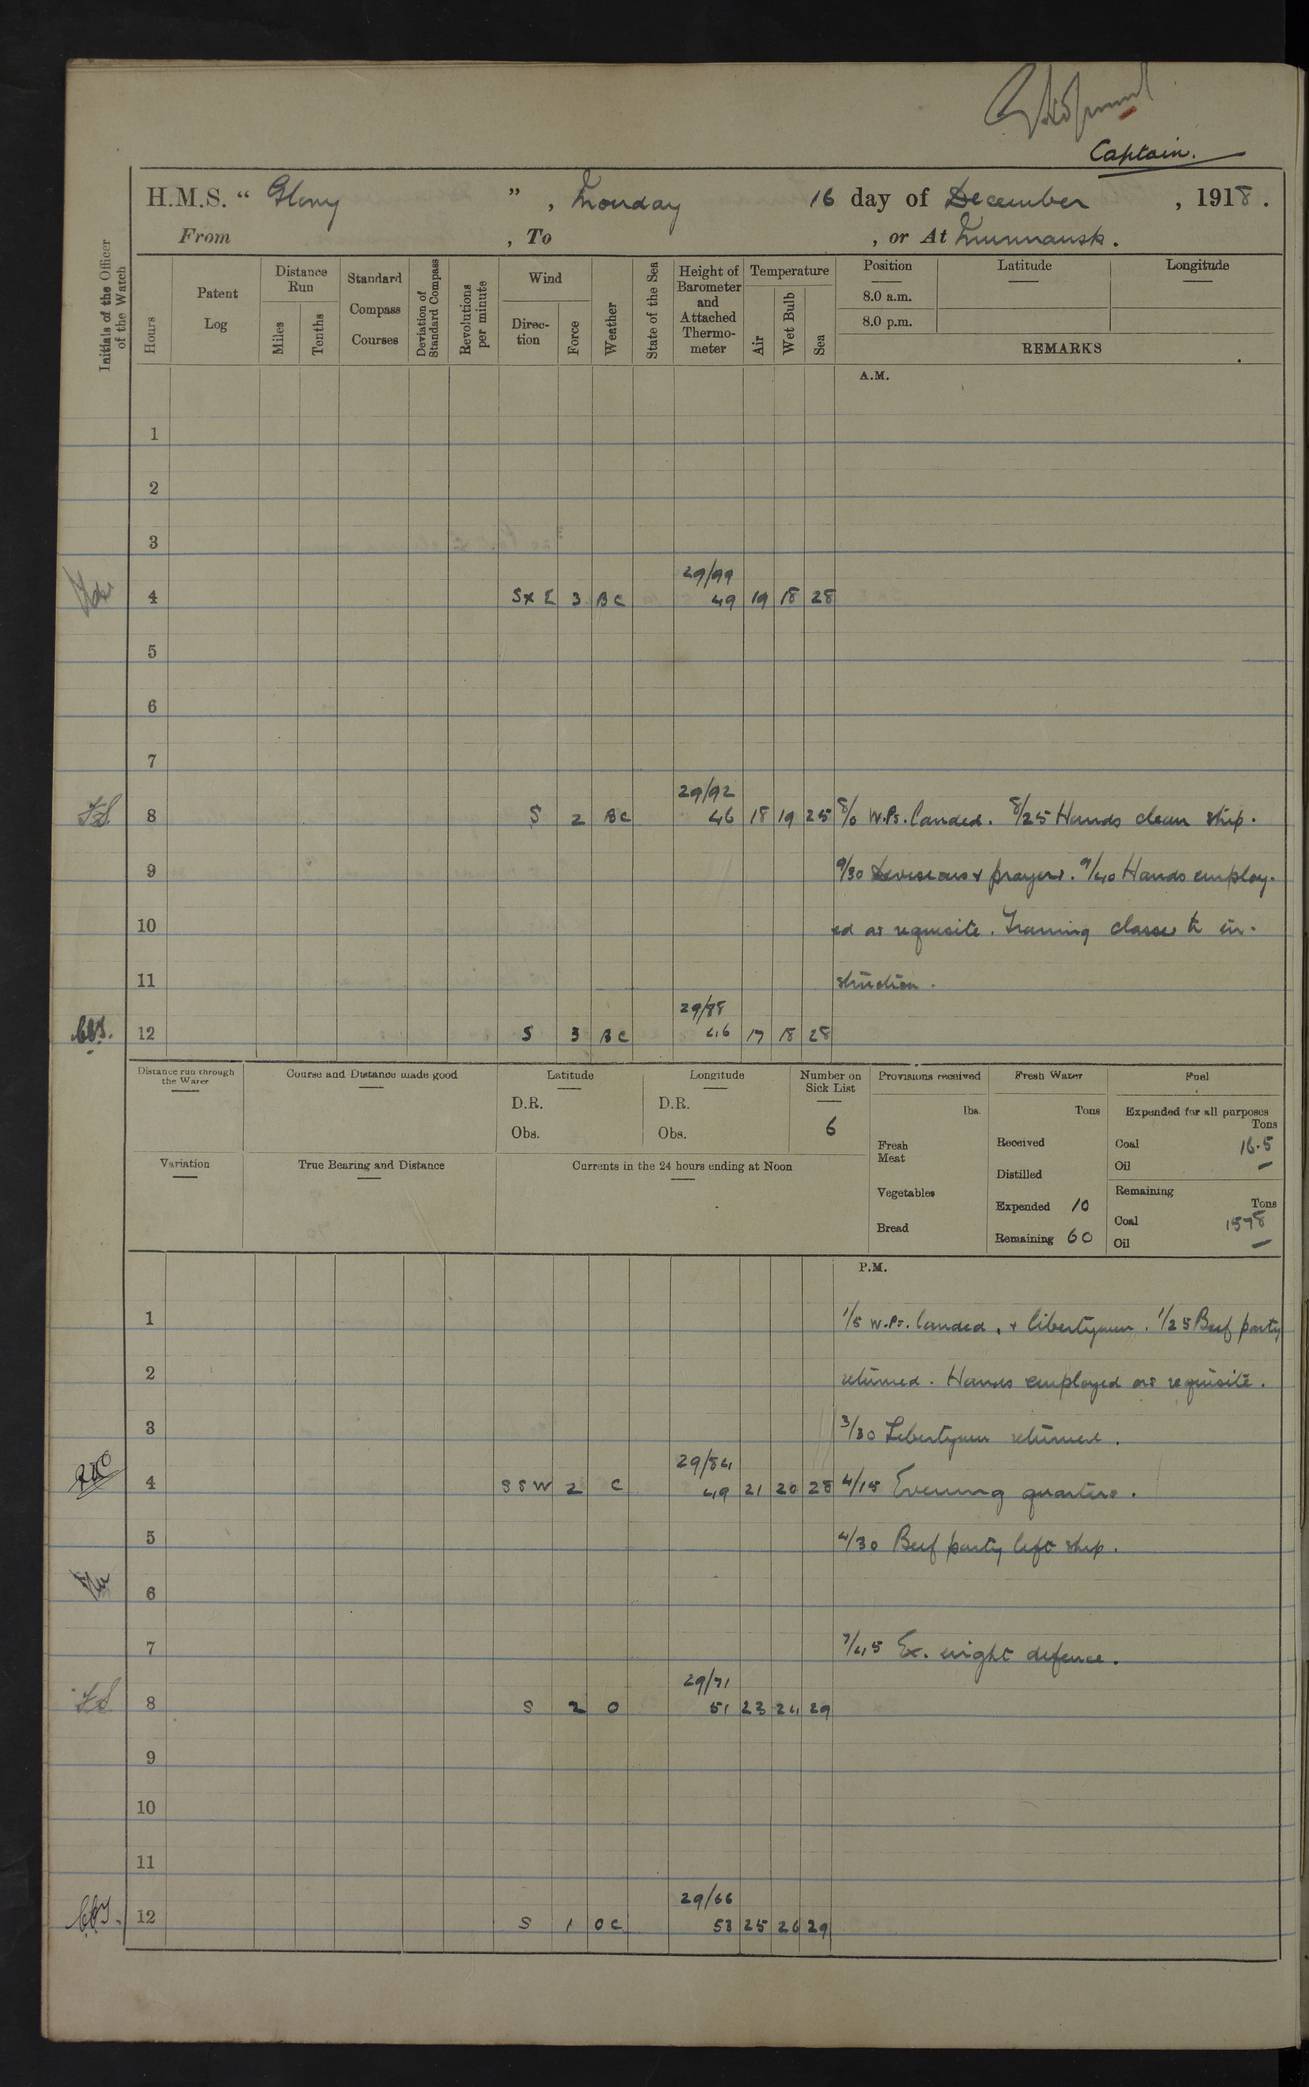 Captain.
H.M.S. " Glory ", Monday 16 day of December, 1918.
From , To , or At Murmansk.
Initials of the Officer of the Watch
Hours
Patent Log
Distance Run
Miles
Tenths
Standard Compass Courses
Deviation of Standard Compass
Revolutions per minute
Wind
Direc-tion
Force
Weather
State of the Sea
Height of Barometer and Attached Thermo-meter
Temperature
Air
Wet Bulb
Sea
Position
8.0 a.m.
8.0 p.m.
Latitude
Longitude
REMARKS
A.M.
1
2
3
29/99
4 S x E 3 BC 49 19 18 28
5
6
7
29/92
8 S 2 BC 46 18 19 25 8/0 W.Ps. landed. 8/25 Hands clean ship.
9 9/30 Divisions + prayers. 9/40 Hands employ-
10 ed as requisite. Training classes to in-
11 struction.
29/88
12 S 3 BC 46 17 18 28
Distance run through the Water
Course and Distance made good
Latitude
D.R.
Obs.
Longitude
D.R.
Obs.
Number on Sick List
6
Provisions received
lbs.
Fresh Meat
Vegetables
Bread
Fresh Water
Tons
Received
Distilled
Expended 10
Remaining 60
Fuel
Expended for all purposes
Tons
Coal 16.5
Oil —
Remaining
Tons
Coal 1578
Oil —
Variation
True Bearing and Distance
Currents in the 24 hours ending at Noon
P.M.
1 1/5 W.Ps. landed, + libertymen. 1/25 Beef party
2 returned. Hands employed as requisite.
3 3/30 Libertymen returned.
29/84
4 SSW 2 C 49 21 20 28 4/15 Evening quarters.
5 4/30 Beef party left ship.
6
7 7/45 Ex. night defence.
29/71
8 S 2 O 51 23 24 29
9
10
11
29/66
12 S 1 OC 53 25 26 29